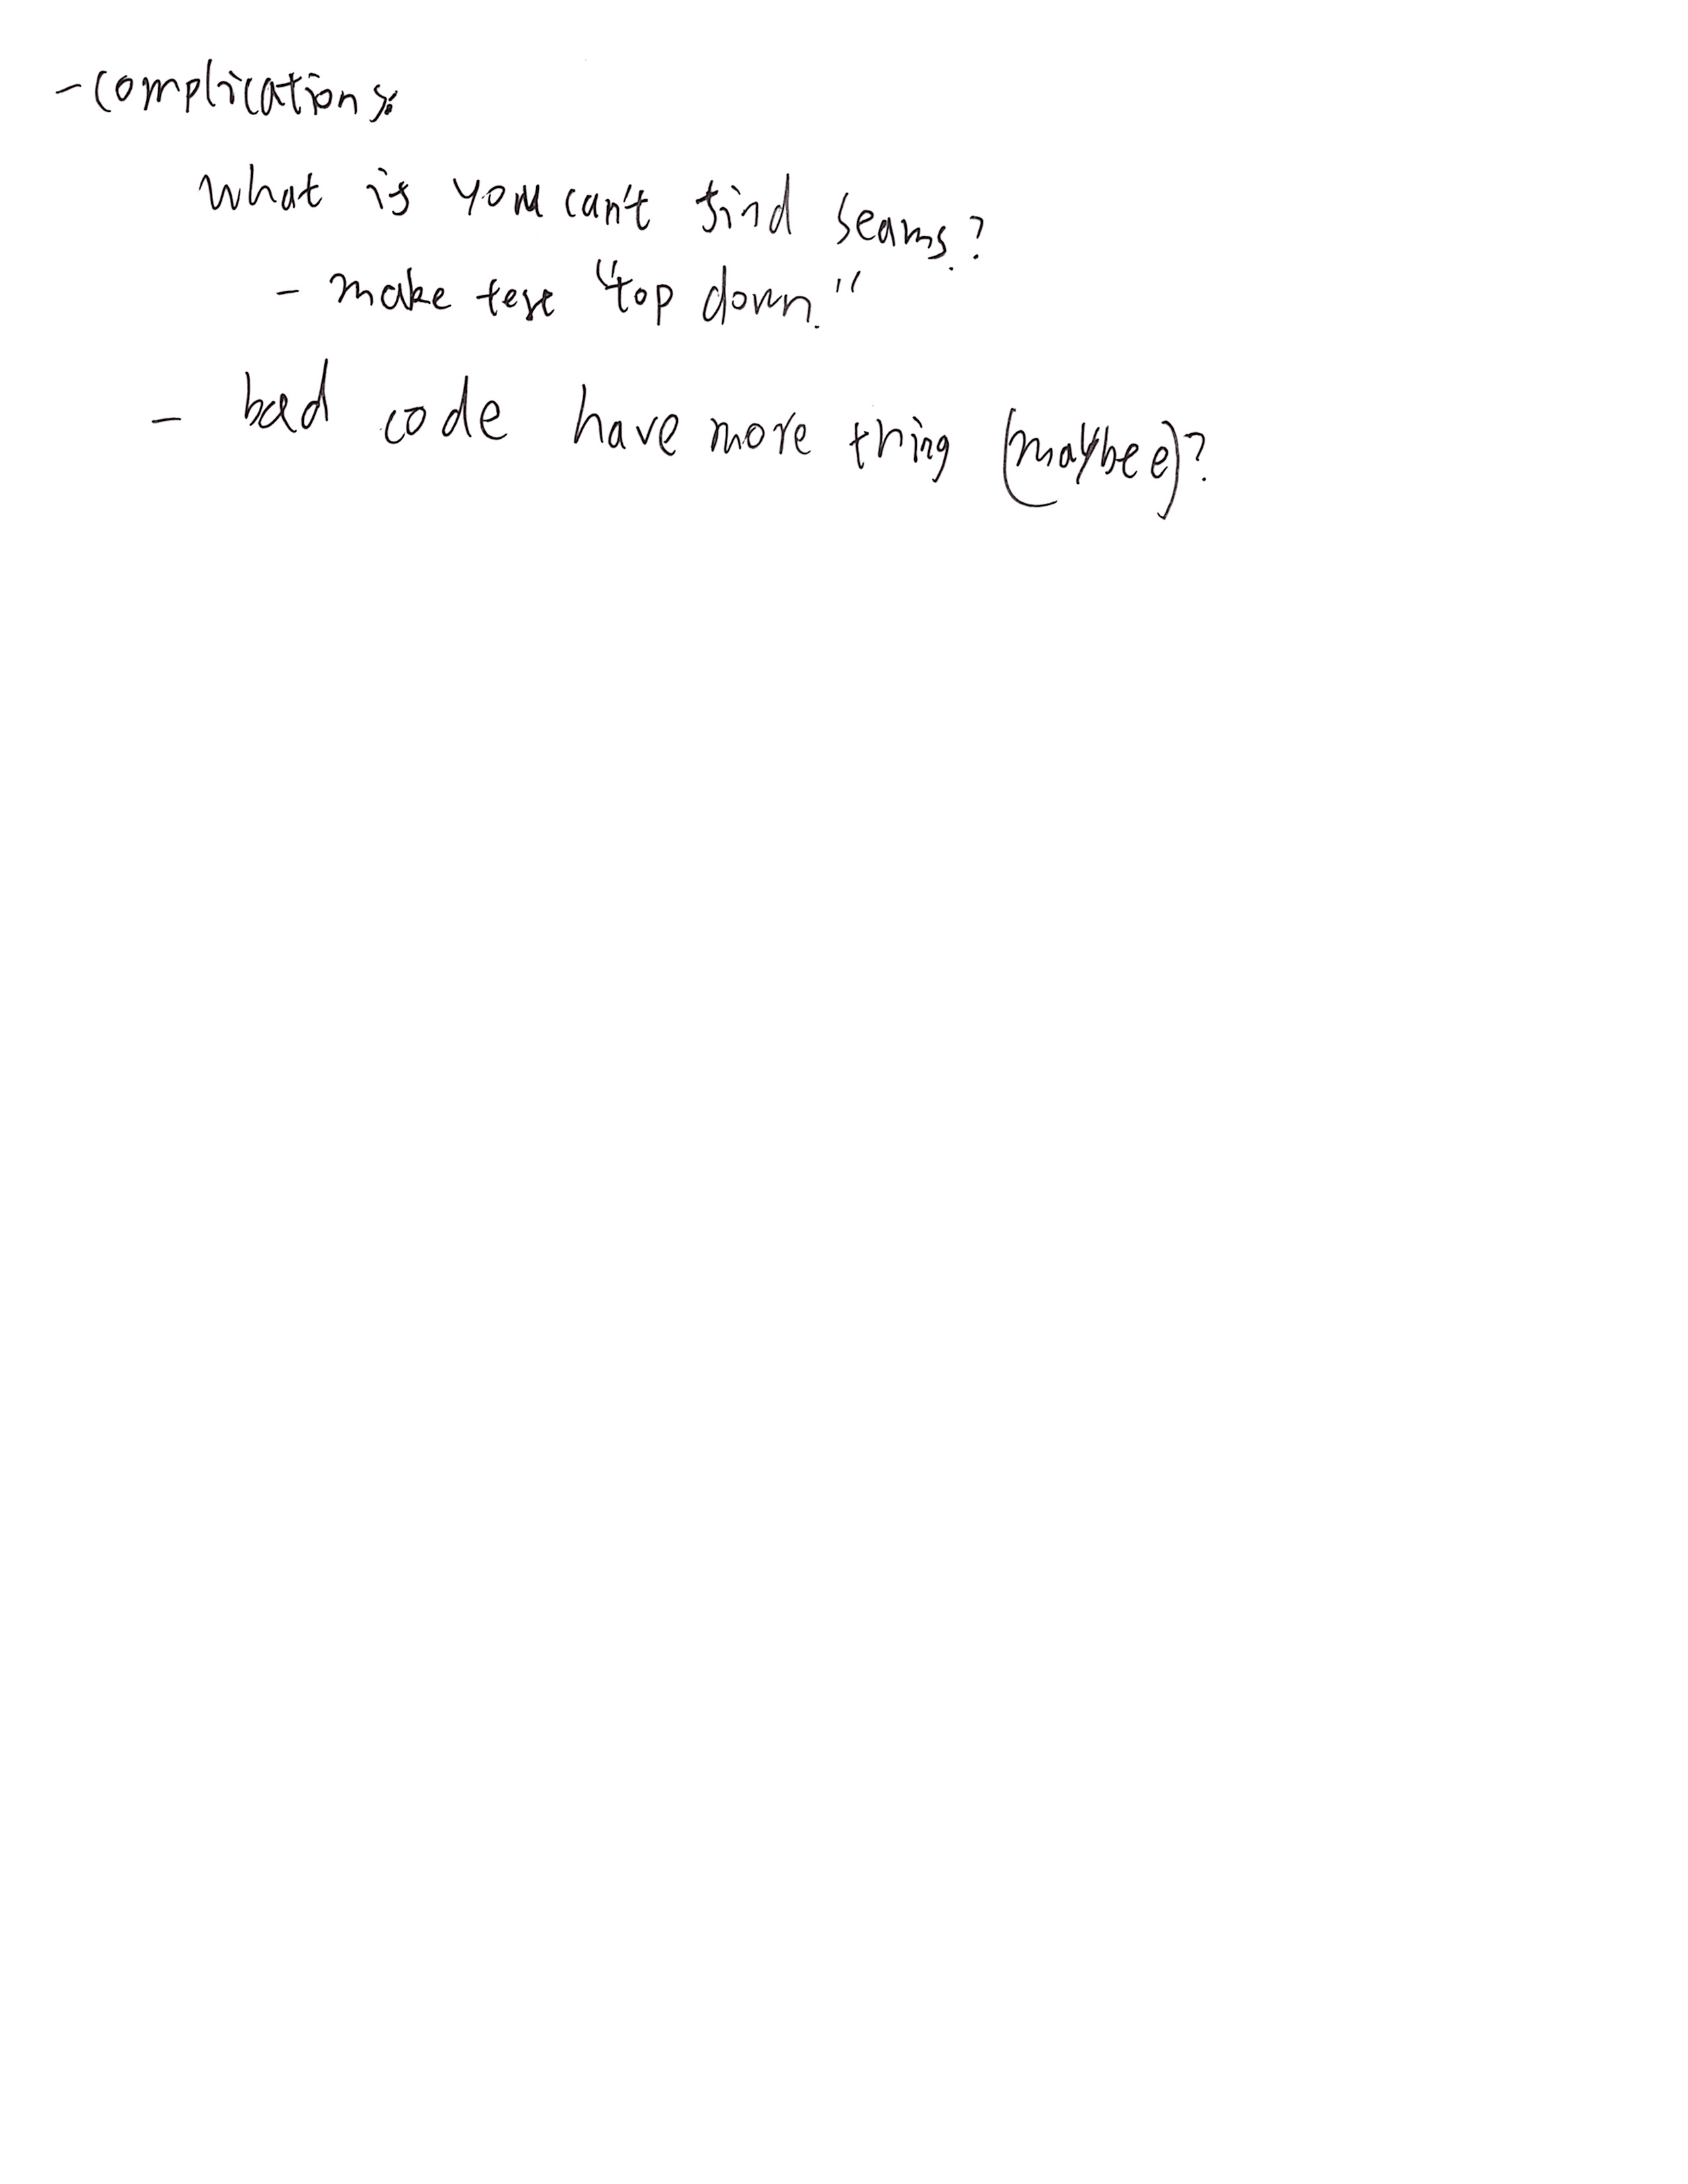 - Complications:
What is you can't find seams?
- make test "top down."
- bad code have more thing (maybee)?